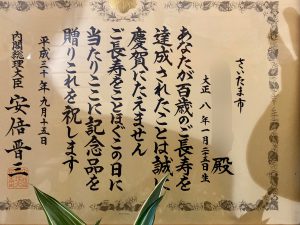 さいたま市
殿
大正八年一月二十五日生
あなたが百歳のご長寿を
達成されたことは誠に
慶賀にたえません
ご長寿をことほぐこの日に
当たりここに記念品を
贈りこれを祝します
平成三十年九月十五日
内閣総理大臣 安倍晋三